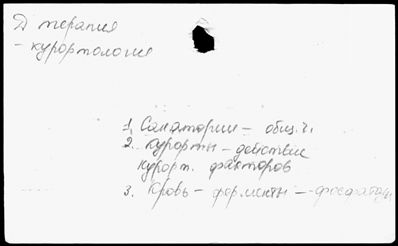 Д терапия
- курортология
1. Санатории - общ. ч.
2. Курорты - действие
курорт. факторов
3. Кровь - ферменты -